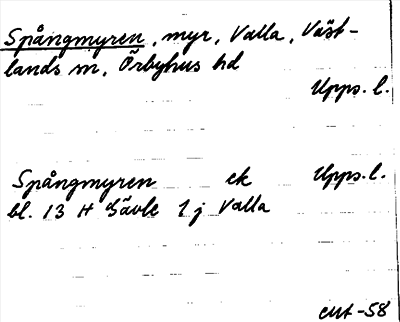 Spångmyren, myr, Valla, Väst-
lands sn, Örbyhus hd
Upps. l.
Spångmyren ek Upps. l.
bl. 13 H Gävle 1 j Valla
-58